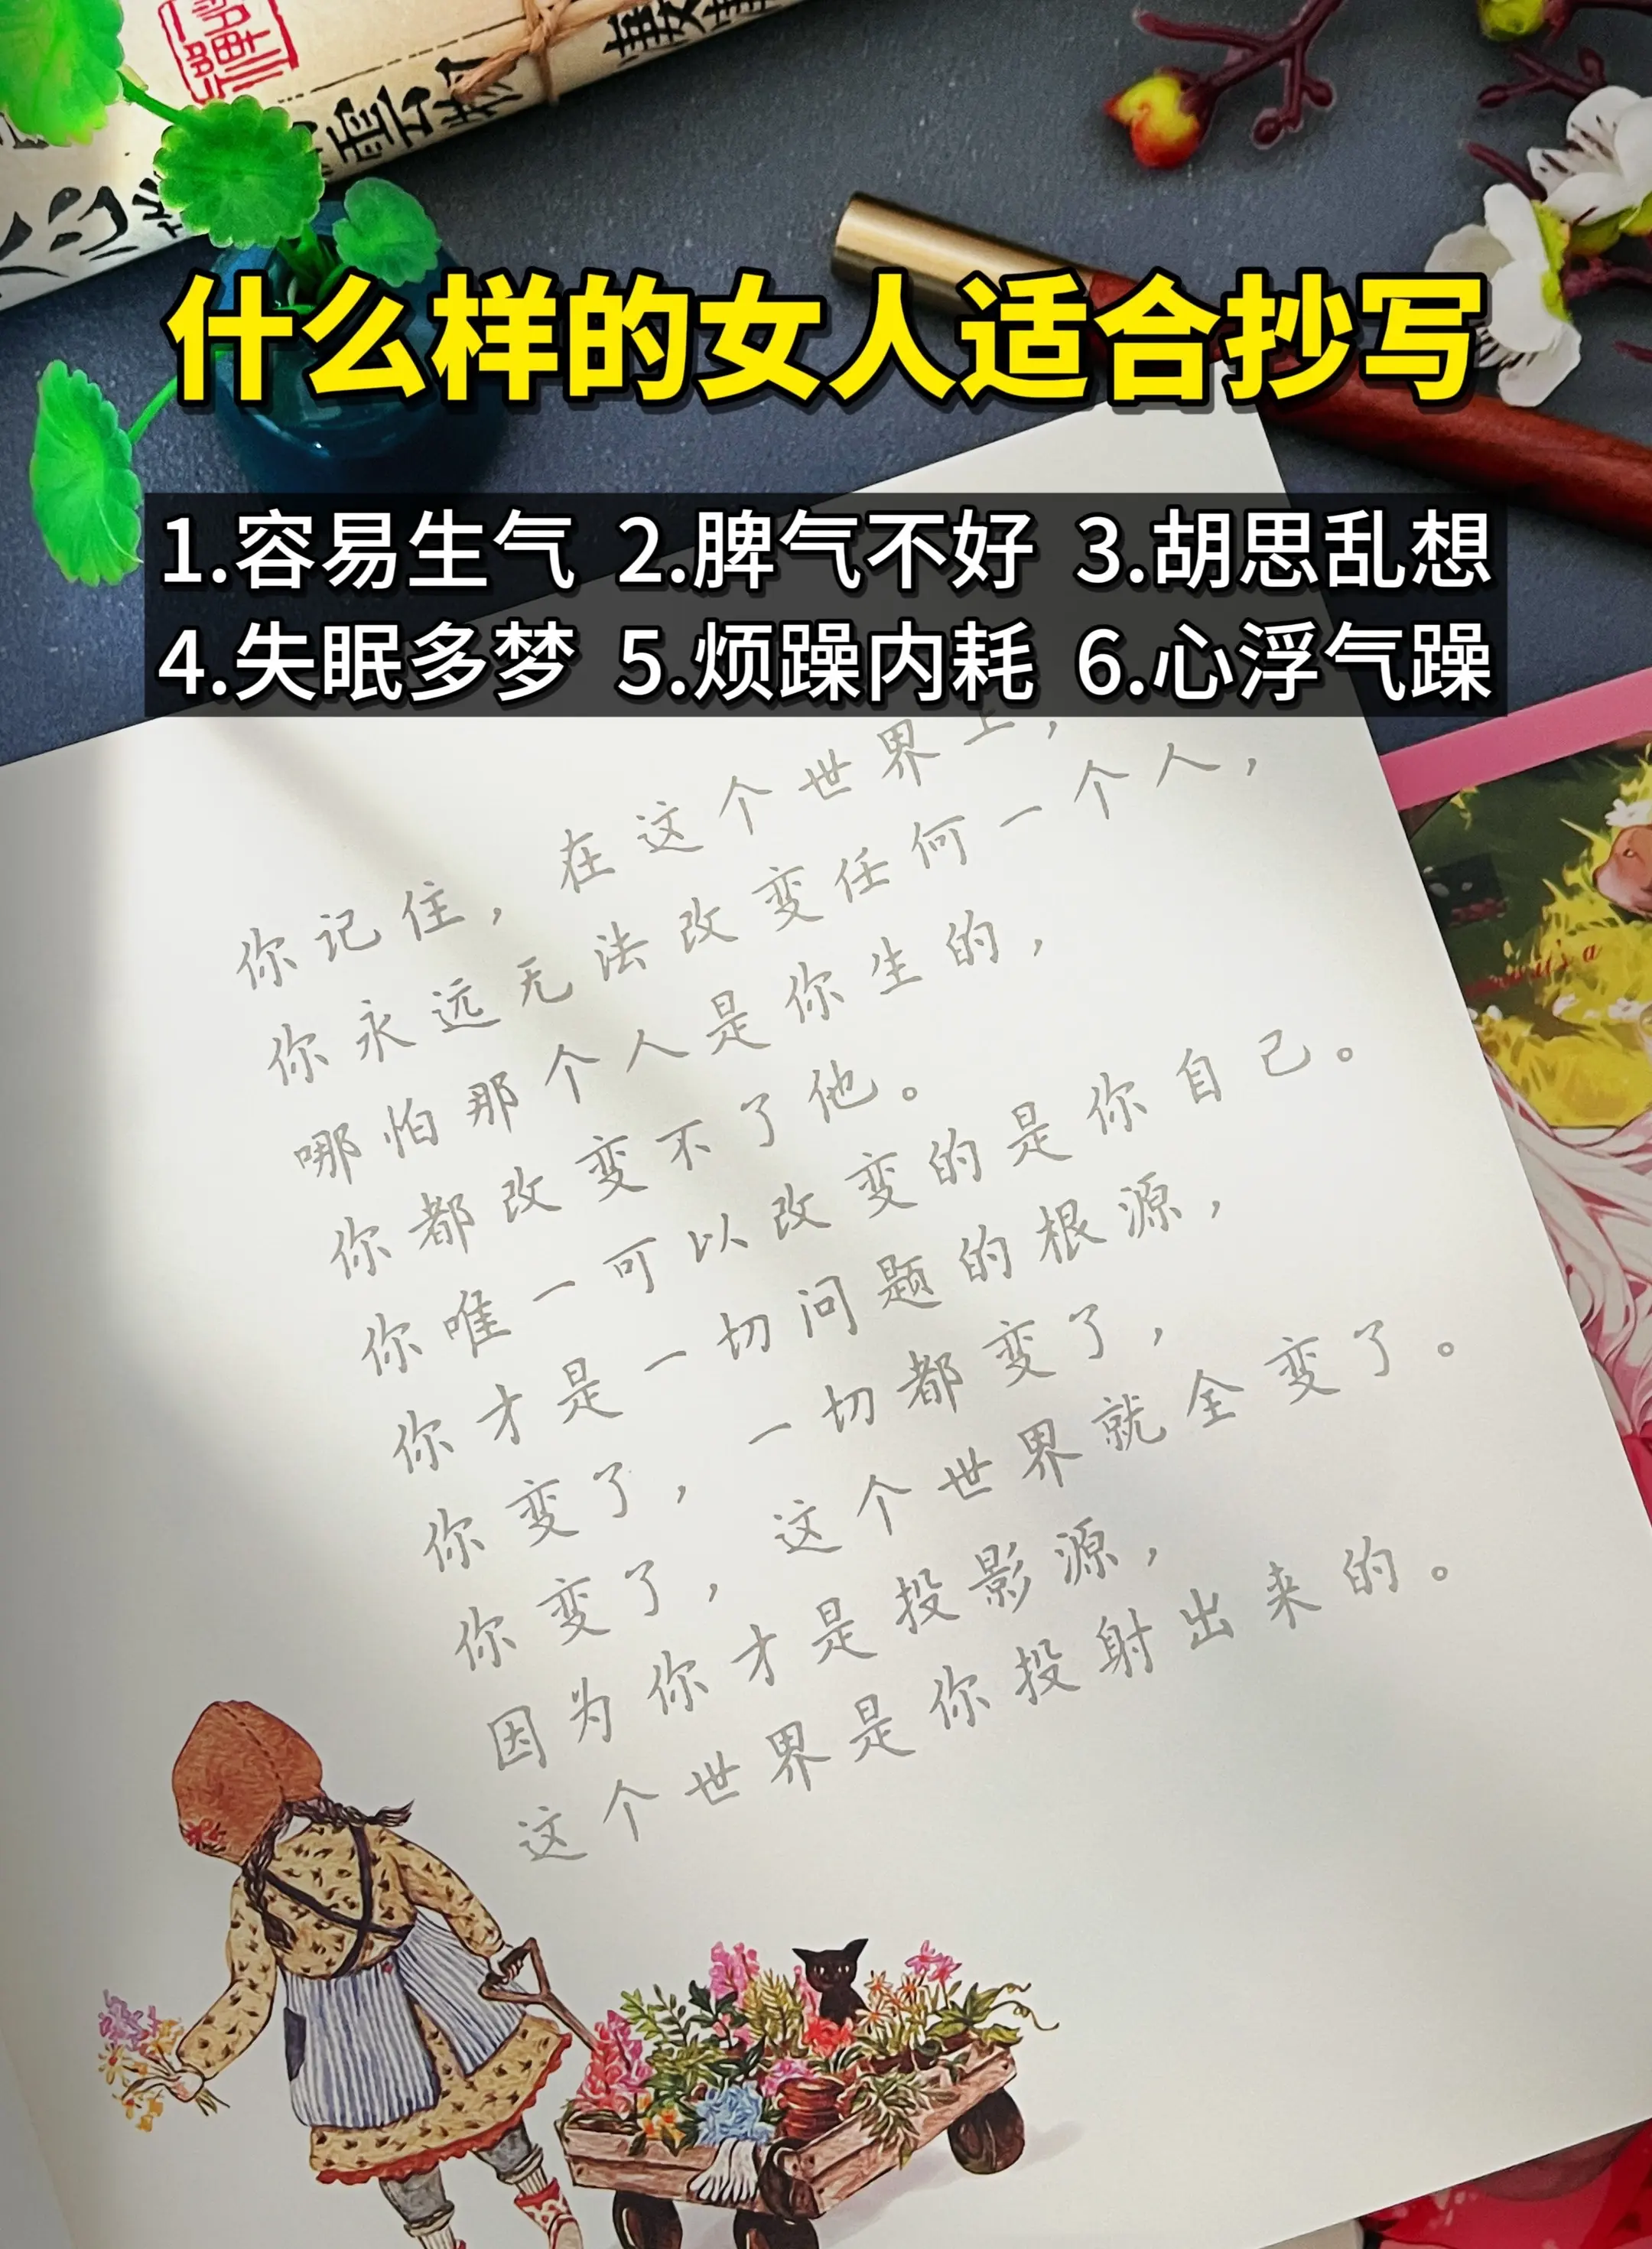 什么样的女人适合抄写
1.容易生气 2.脾气不好 3.胡思乱想
4.失眠多梦 5.烦躁内耗 6.心浮气躁
你记住，在这个世界上，
你永远无法改变任何一个人，
哪怕那个人是你生的，
你都改变不了他。
你唯一可以改变的是你自己。
你才是一切问题的根源，
你变了，一切都变了，
你变了，这个世界就全变了。
因为你才是投影源，
这个世界是你投射出来的。